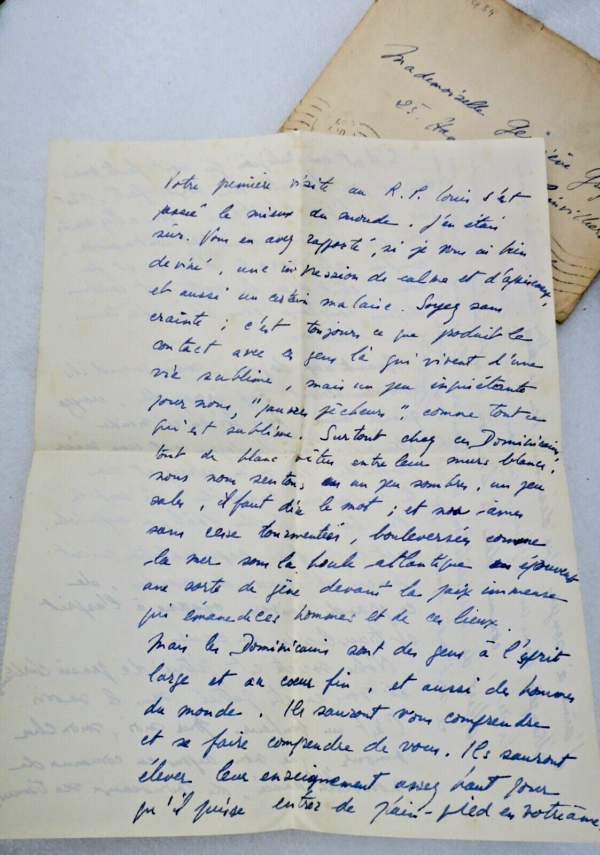 Mademoiselle
25
Votre première visite au R. P. Louis s'est
passée le mieux du monde. J'en étais
sûr. Vous en avez rapporté, si je vous ai bien
deviné, une impression de calme et d'apaisement,
et aussi un certain malaise. Soyez sans
crainte ; c'est toujours ce que produit le
contact avec ces gens là qui vivent d'une
vie sublime, mais un peu inquiétante
pour nous, "pauvres pêcheurs", comme tout ce
qui est sublime. Surtout chez ces Dominicains,
tout de blanc vêtus entre leur murs blancs,
nous nous sentons un peu sombres, un peu
sales, il faut dire le mot ; et nos âmes
sans cesse tourmentées, bouleversées comme
la mer sous la houle atlantique en éprouvent
une sorte de gêne devant la paix immense
qui émane de ces hommes et de ces lieux.
Mais les Dominicains sont des gens à l'esprit
large et au cœur fin, et aussi des hommes
du monde. Ils sauront vous comprendre
et se faire comprendre de vous. Ils sauront
élever leur enseignement assez haut pour
qu'il puisse entrer de plain-pied en votre âme.